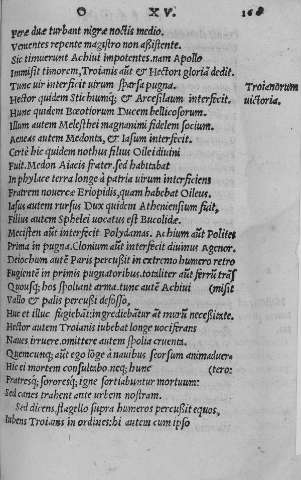 O XV. 168
Feræ duæ turbant nigræ noctis medio.
Venentes repente magistro non assistente.
Sic timuerunt Achiui impotentes. nam Apollo
Immisit timorem, Troianis aūt & Hectori gloriā dedit.
Tunc uir interficit uirum sparsa pugna. Troianorum
Hector quidem Stichiumq; & Arcesilaum interficit. uictoria.
Hunc quidem Bœotiorum Ducem bellicosorum.
Illum autem Melesthei magnanimi fidelem socium.
Aeneas autem Medonta, & Iasum interficit.
Certè hic quidem nothus filius Oilei diuini
Fuit. Medon Aiacis frater. sed habitabat
In phylace terra longe à patria uirum interficiens
Fratrem nouercæ Eriopidis, quam habebat Oileus.
Iasus autem rursus Dux quidem Atheniensium fuit,
Filius autem Sphelei uocatus est Bucolidæ.
Mecisten aūt interfecit Polydamas. Achium aūt Polites
Prima in pugna. Clonium aūt interfecit diuinus Agenor.
Deiochum autē Paris percussit in extremo humero retro
Fugientē in primis pugnatoribus. totaliter aūt ferrū trās
Quousq; hos spoliant arma. tunc autē Achiui (misit
Vallo & palis percussi defosso,
Huc et illuc fugiebāt: ingrediebātur āt murū necessitate.
Hector autem Troianis iubebat longe uociferans
Naues irruere. omittere autem spolia cruenta.
Quemcunq; aūt ego lōge à nauibus seorsum animaduerā
Hic ei mortem consultabo. neq; hunc (tero:
Fratresq; sororesq; igne sortiabuntur mortuum:
Sed canes trahent ante urbem nostram.
Sed dicens, flagello supra humeros percussit equos,
Iubens Troianis in ordines: hi autem cum ipso